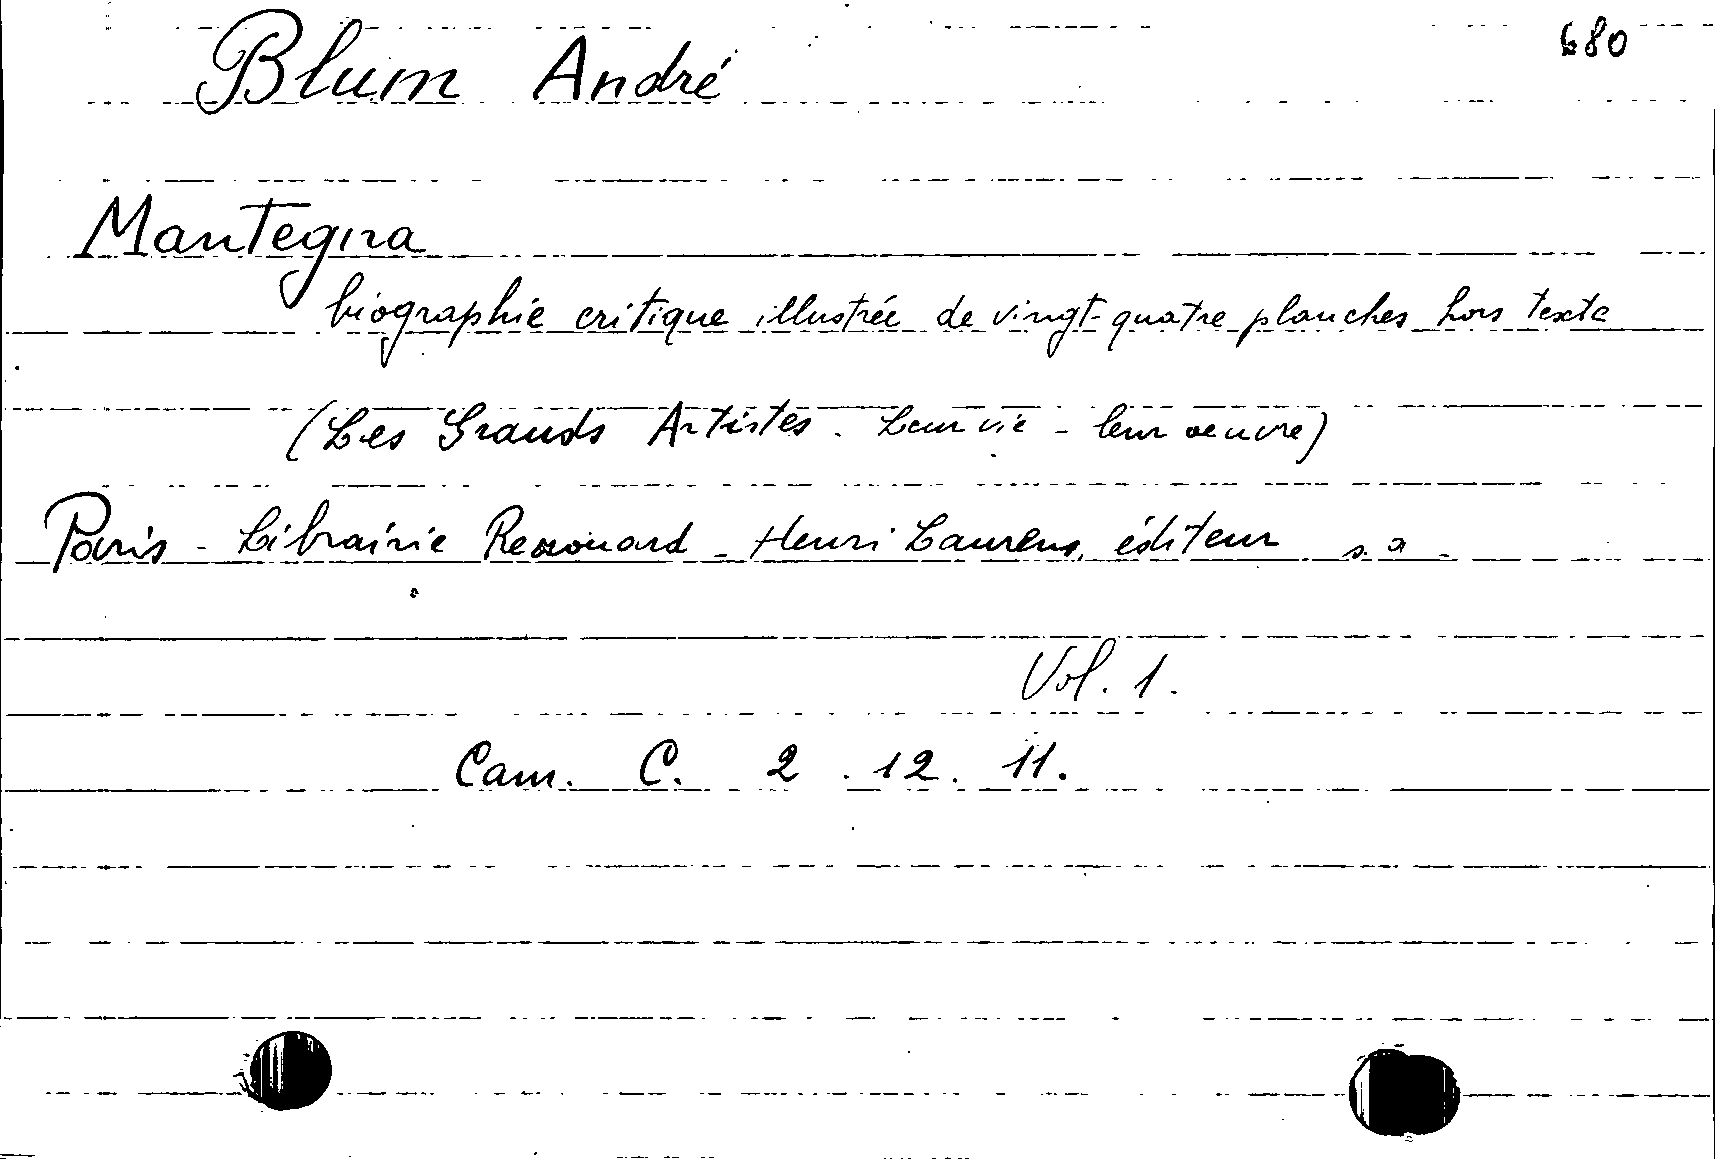 680
Blum André
Mantegna
biographie critique illustrée de vingt-quatre planches hors texte
(Les Grands Artistes. Leur vie - leur oeuvre)
Paris - Librairie Renouard - Henri Laurens, éditeur s.a.
Vol. 1.
Cam. C. 2.12.11.